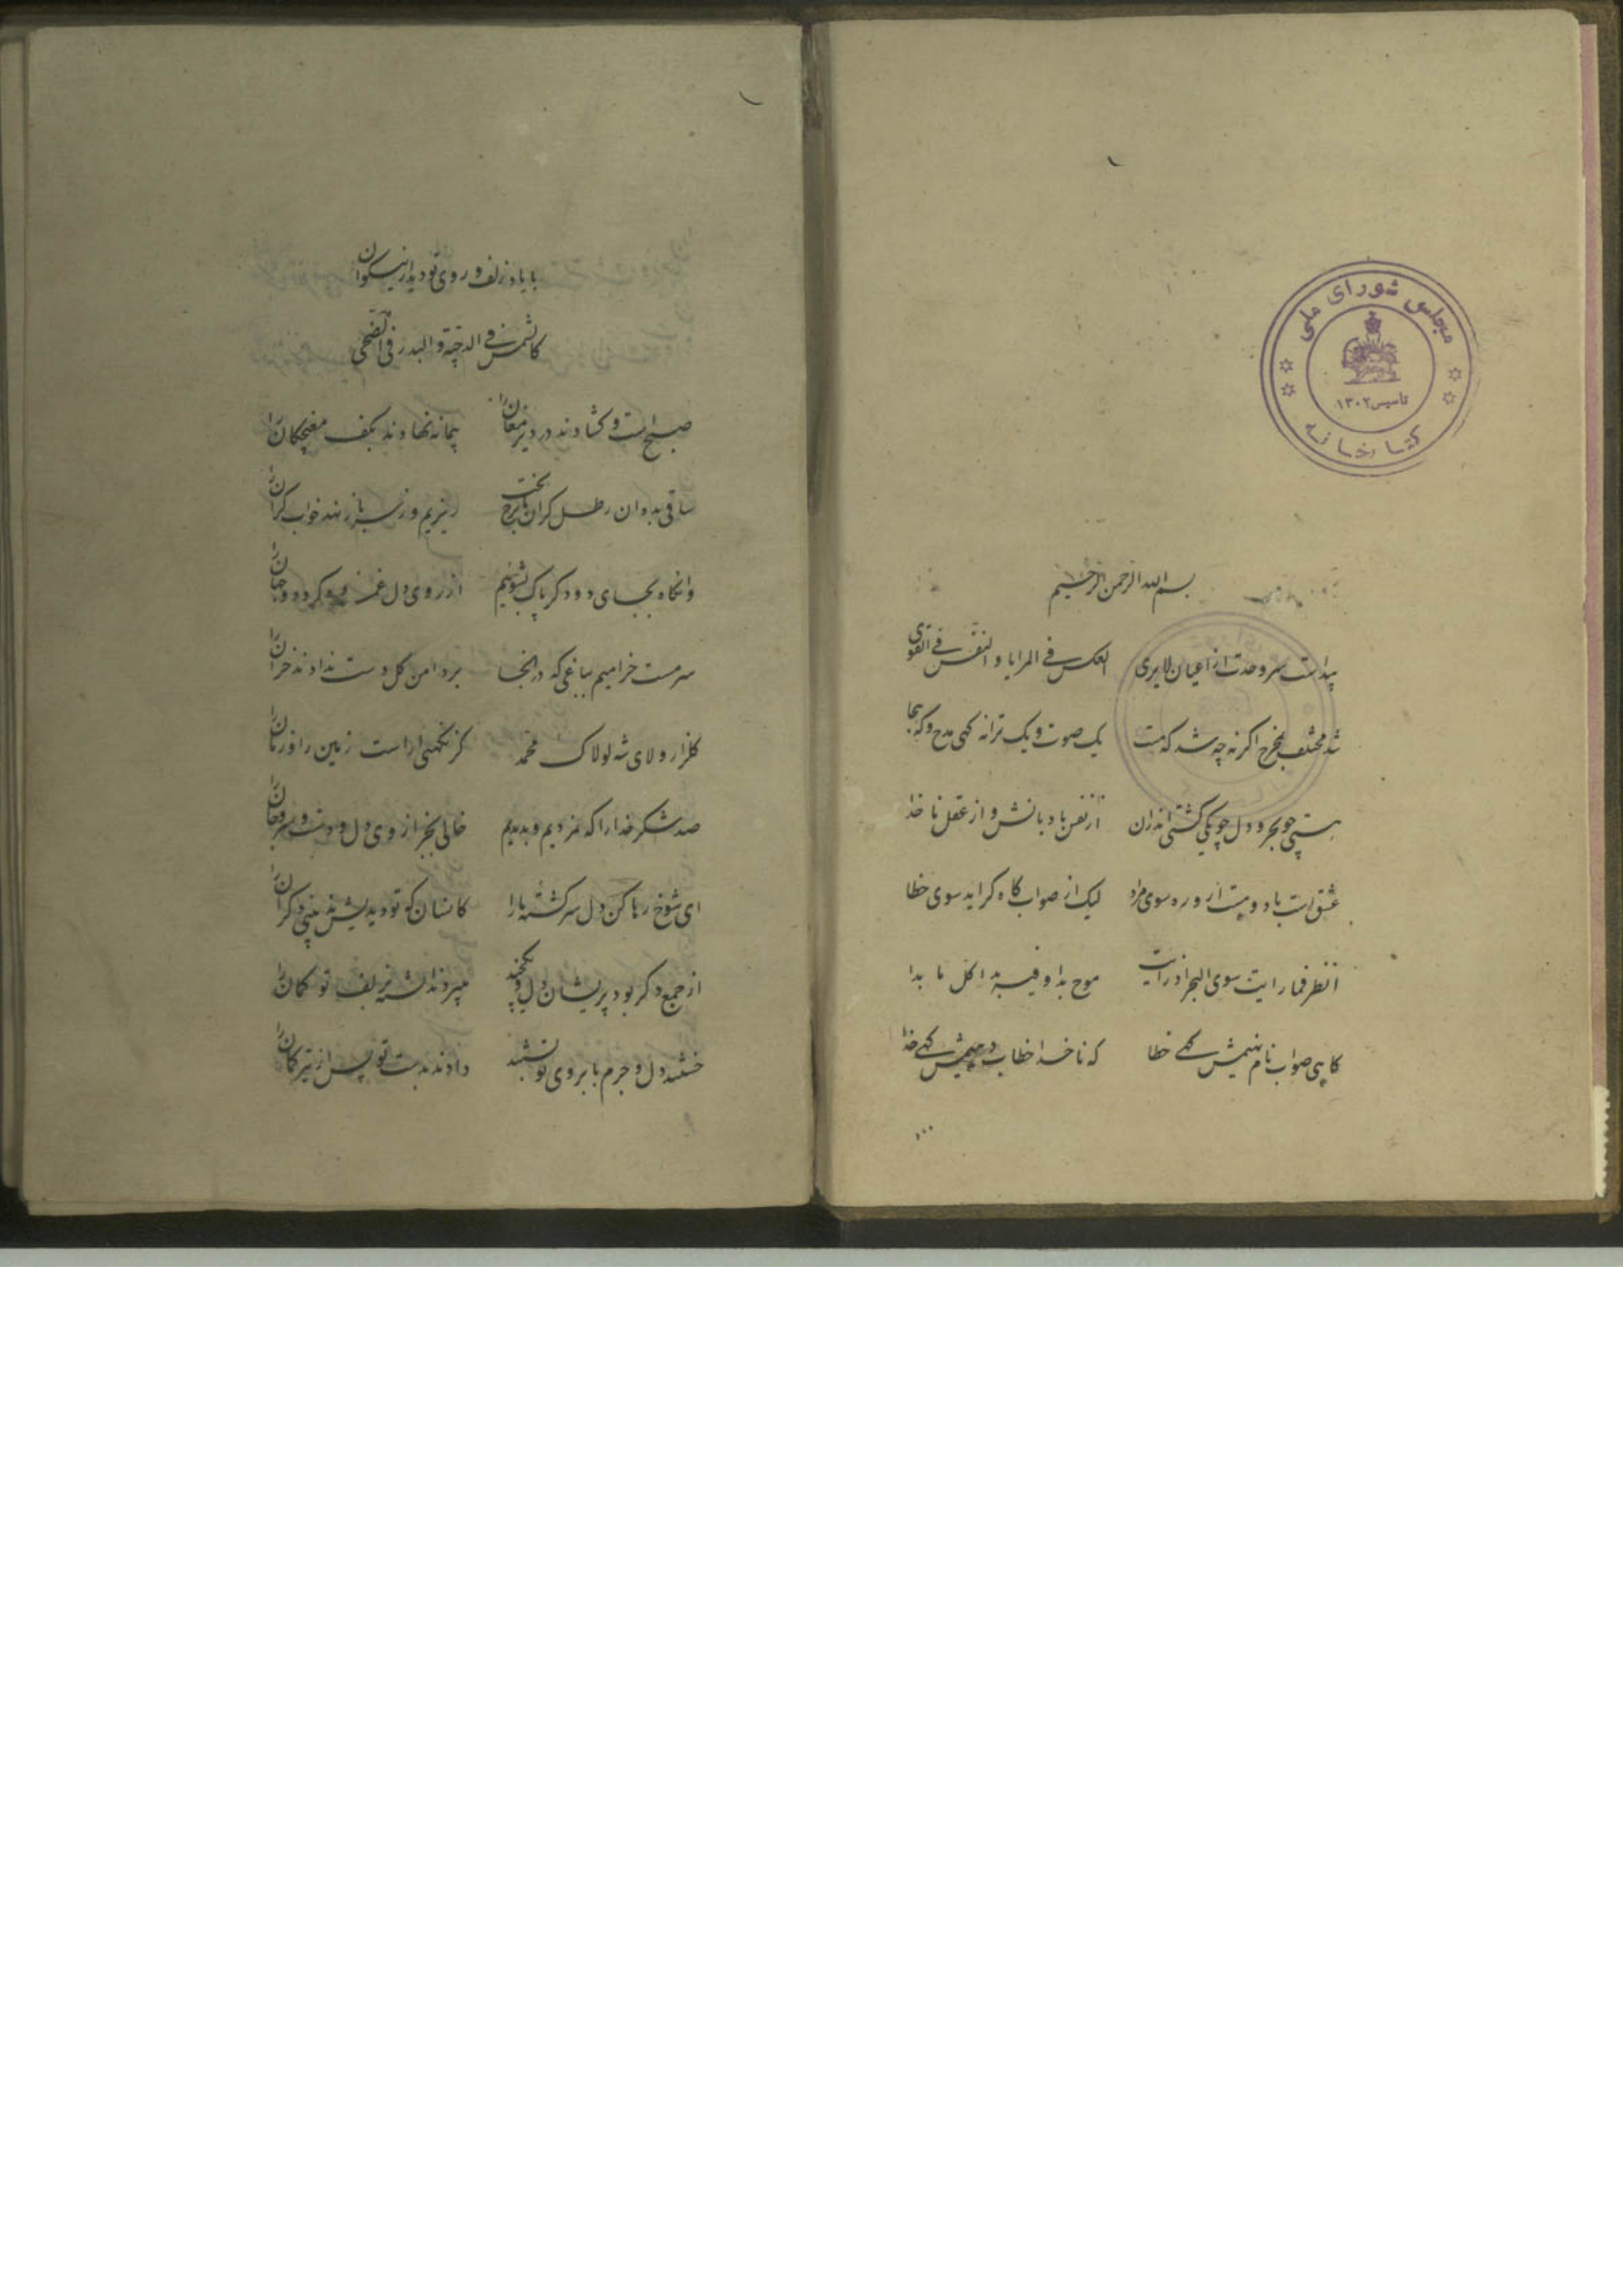 مجلس شورای ملی
تاسیس ۱۳۰۲
کتابخانه
بسم الله الرحمن الرحیم
پیداست سر وحدت از اعیان لایری العکس فی المرایا و النفس فی القوی
شد مختلف مخرج اگر نه چه شد که مت یک صوت و یک ترانه کهی مدح و که هجا
هستی چو بحر و دل چو یکی کشتی اندران از نفس بادبانش و از عقل ناخدا
عشق است باد و نیست از و ره سوی مراد لیک از صواب کاه کراید سوی خطا
انظر فما رایت سوی البحر اذ رایت موج بدا و فیه بدا کل ما بدا
کاهی صواب نام نهیمش کهی خطا که ناخدا خطاب دهیمش کهی خدا
۱
با یاد زلف و روی تو دیدار نیکوان
کالشمس فی الدجیة و البدر فی الضحی
صبح است و کشادند در دیر مغان را پیمانه نهادند بکف مغبچکان را
ساقی بده ان رطل کران تا برخ بخت ریزیم و ز سر باز نهد خواب کران را
وانکاه بجای دود کر پاک بشوئیم از روی دل غمزده کرد دو جهان را
سرمست خرامیم بباغی که در انجا بر دامن کل دست ندادند خزان را
کلزار ولای شه لولاک محمد کز نکهتی اراست زمین را و زمان را
صد شکر خدا را که نمردیم و بدیدیم خالی بجز از وی دل و دست و سر و جان را
ای شوخ رها کن دل سرکشته ما را کانسان که تو دیدیش نه بینی دکران را
از جمع دکر بود پریشان دلی و نکنجید سپردند بزلف تو کمان را
خستند دل و جرم بابروی تو بستند دادند بدست تو پس از تیر کمان را